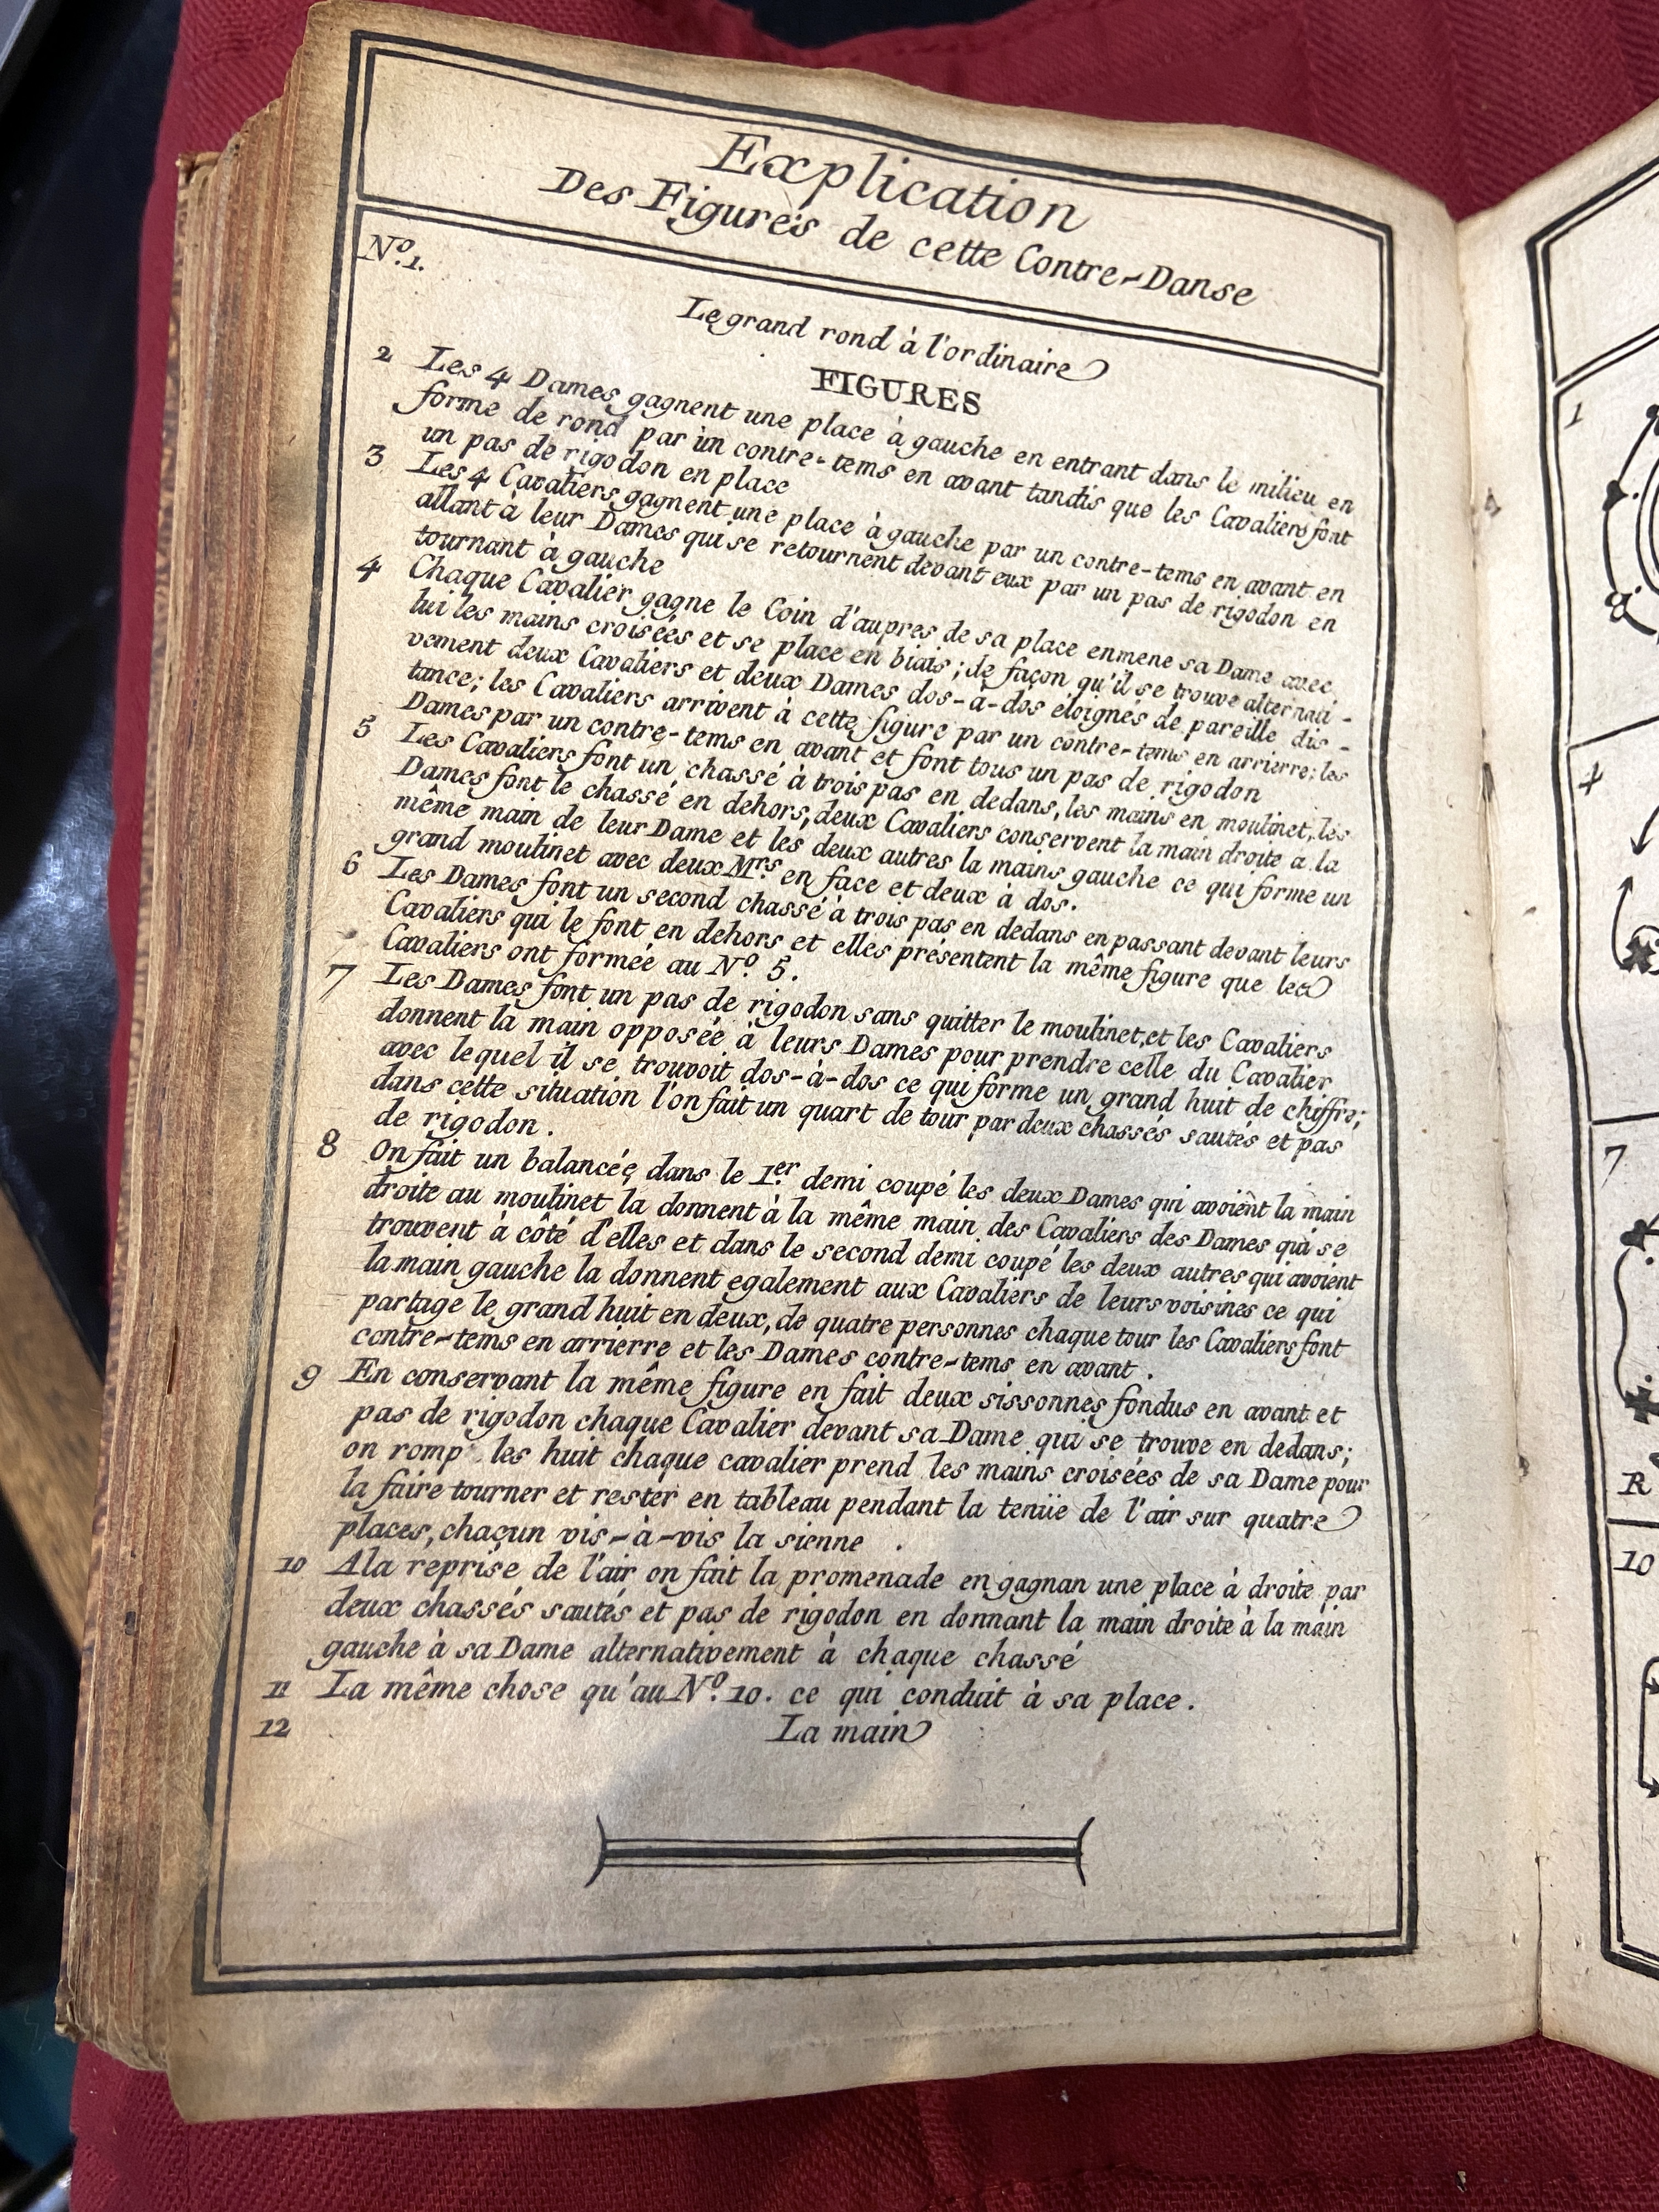 Explication
Des Figures de cette Contre-Danse
N.º 1.
Le grand rond à l'ordinaire
FIGURES
2 Les 4 Dames gagnent une place à gauche en entrant dans le milieu en
forme de rond par un contre-tems en avant tandis que les Cavaliers font
un pas de rigodon en place
3 Les 4 Cavaliers gagnent une place à gauche par un contre-tems en avant en
allant à leur Dames qui se retournent devant eux par un pas de rigodon en
tournant à gauche
4 Chaque Cavalier gagne le Coin d'aupres de sa place enmene sa Dame avec
lui les mains croisées et se place en biais; de façon qu'il se trouve alternati-
vement deux Cavaliers et deux Dames dos-à-dos eloignés de pareille dis-
tance; les Cavaliers arrivent à cette figure par un contre-tems en arrierre; les
Dames par un contre-tems en avant et font tous un pas de rigodon
5 Les Cavaliers font un chassé à trois pas en dedans, les mains en moulinet, les
Dames font le chassé en dehors, deux Cavaliers conservent la main droite a la
même main de leur Dame et les deux autres la mains gauche ce qui forme un
grand moulinet avec deux Mrs en face et deux à dos.
6 Les Dames font un second chassé à trois pas en dedans en passant devant leurs
Cavaliers qui le font en dehors et elles présentent la même figure que les
Cavaliers ont formée au N.º 5.
7 Les Dames font un pas de rigodon sans quitter le moulinet, et les Cavaliers
donnent la main opposée à leurs Dames pour prendre celle du Cavalier
avec lequel il se trouvoit dos-à-dos ce qui forme un grand huit de chiffre;
dans cette situation l'on fait un quart de tour par deux chassés sautés et pas
de rigodon.
8 On fait un balancée dans le 1.er demi coupé les deux Dames qui avoient la main
droite au moulinet la donnent à la même main des Cavaliers des Dames qui se
trouvent à côté d'elles et dans le second demi coupé les deux autres qui avoient
la main gauche la donnent egalement aux Cavaliers de leurs voisines ce qui
partage le grand huit en deux, de quatre personnes chaque tour les Cavaliers font
contre-tems en arrierre et les Dames contre-tems en avant.
9 En conservant la même figure en fait deux sissonnes fondus en avant et
pas de rigodon chaque Cavalier devant sa Dame qui se trouve en dedans;
on romp les huit chaque cavalier prend les mains croisées de sa Dame pour
la faire tourner et rester en tableau pendant la tenüe de l'air sur quatre
places, chacun vis-à-vis la sienne.
10 A la reprise de l'air on fait la promenade en gagnan une place à droite par
deux chassés sautés et pas de rigodon en donnant la main droite à la main
gauche à sa Dame alternativement à chaque chassé
11 La même chose qu'au N.º 10. ce qui conduit à sa place.
12 La main
1
4
7
R
10